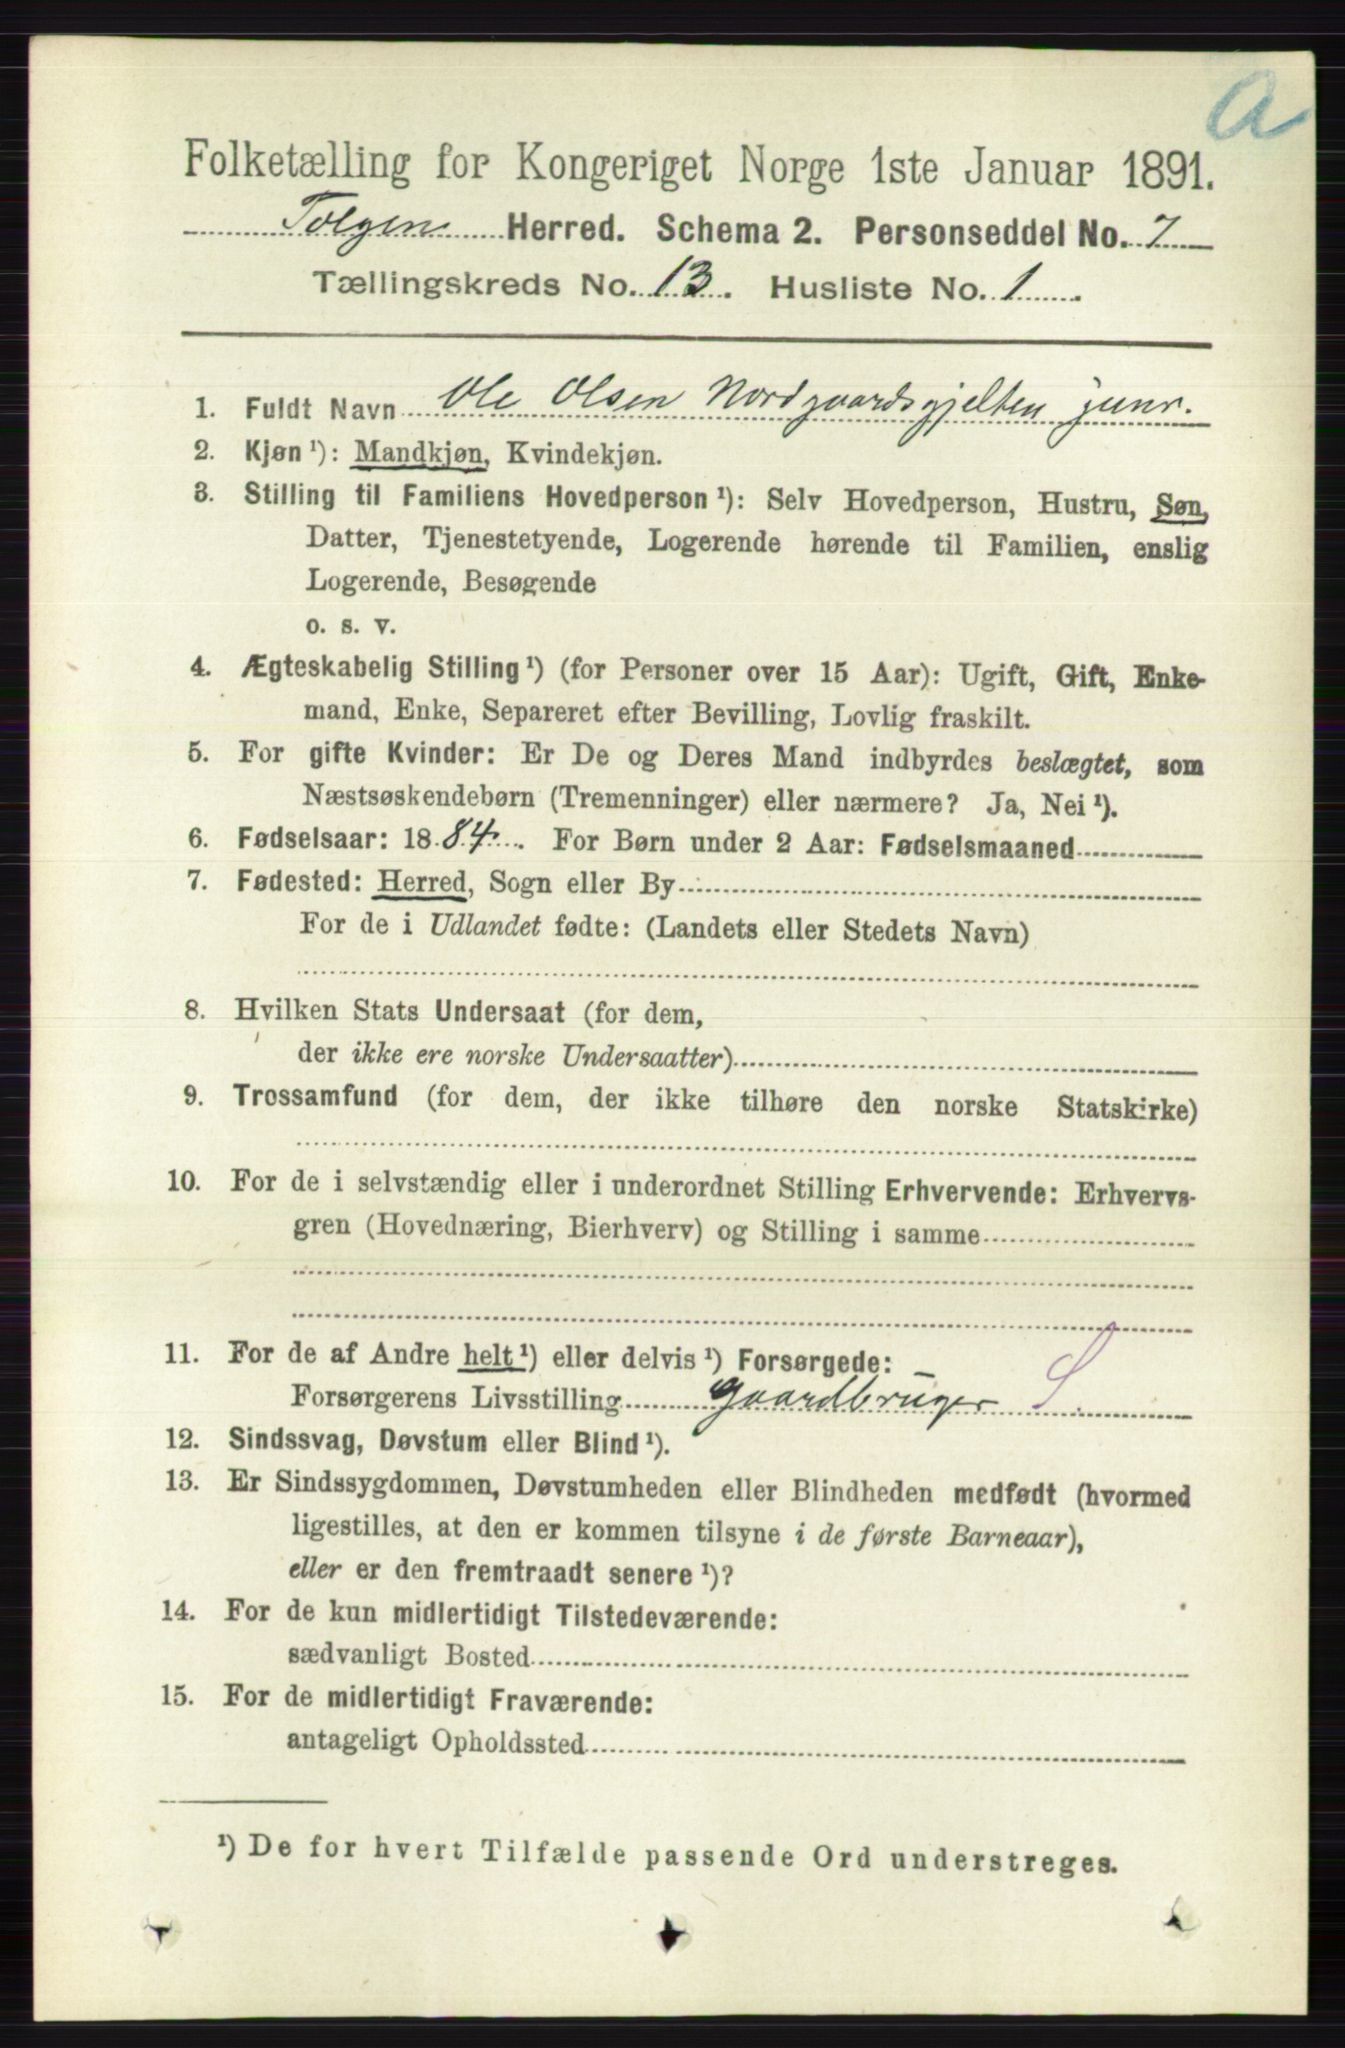 a
Folketælling for Kongeriget Norge 1ste Januar 1891.
Tolgen Herred. Schema 2. Personseddel No. 7
Tællingskreds No. 13. Husliste No. 1
1. Fuldt Navn Ole Olsen Nordgaardsgjelten junr.
2. Kjøn ¹): Mandkjøn, Kvindekjøn.
3. Stilling til Familiens Hovedperson ¹): Selv Hovedperson, Hustru, Søn,
Datter, Tjenestetyende, Logerende hørende til Familien, enslig
Logerende, Besøgende
o. s. v.
4. Ægteskabelig Stilling ¹) (for Personer over 15 Aar): Ugift, Gift, Enke-
mand, Enke, Separeret efter Bevilling, Lovlig fraskilt.
5. For gifte Kvinder: Er De og Deres Mand indbyrdes beslægtet, som
Næstsøskendebørn (Tremenninger) eller nærmere? Ja, Nei ¹).
6. Fødselsaar: 1884. For Børn under 2 Aar: Fødselsmaaned
7. Fødested: Herred, Sogn eller By
For de i Udlandet fødte: (Landets eller Stedets Navn)
8. Hvilken Stats Undersaat (for dem,
der ikke ere norske Undersaatter)
9. Trossamfund (for dem, der ikke tilhøre den norske Statskirke)
10. For de i selvstændig eller i underordnet Stilling Erhvervende: Erhvervs-
gren (Hovednæring, Bierhverv) og Stilling i samme
11. For de af Andre helt ¹) eller delvis ¹) Forsørgede:
Forsørgerens Livsstilling Gaardbruger S
12. Sindssvag, Døvstum eller Blind ¹).
13. Er Sindssygdommen, Døvstumheden eller Blindheden medfødt (hvormed
ligestilles, at den er kommen tilsyne i de første Barneaar),
eller er den fremtraadt senere ¹)?
14. For de kun midlertidigt Tilstedeværende:
sædvanligt Bosted
15. For de midlertidigt Fraværende:
antageligt Opholdssted
¹) De for hvert Tilfælde passende Ord understreges.